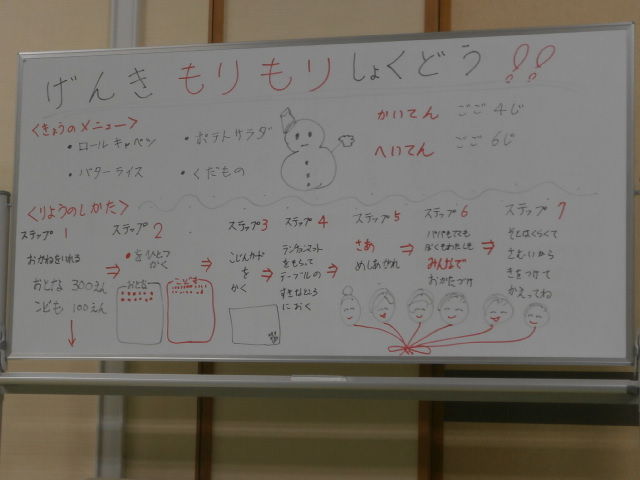 げんき もりもり しょくどう!!
<きょうのメニュー>
・ロールキャベツ
・ポテトサラダ
・バターライス
・くだもの
かいてん ごご 4じ
へいてん ごご 6じ
<りようのしかた>
ステップ 1
おかねをいれる
おとな 300えん
こども 100えん
ステップ 2
●をひとつ
かく
おとな
こども
ステップ 3
こじんカード
を
かく
ステップ 4
ランチョンマット
をもって
テーブルの
すきなところ
におく
ステップ 5
さあ
めしあがれ
ステップ 6
パパもママも
ぼくもわたしも
みんなで
おかたづけ
ステップ 7
そとはくらくて
さむいから
きをつけて
かえってね